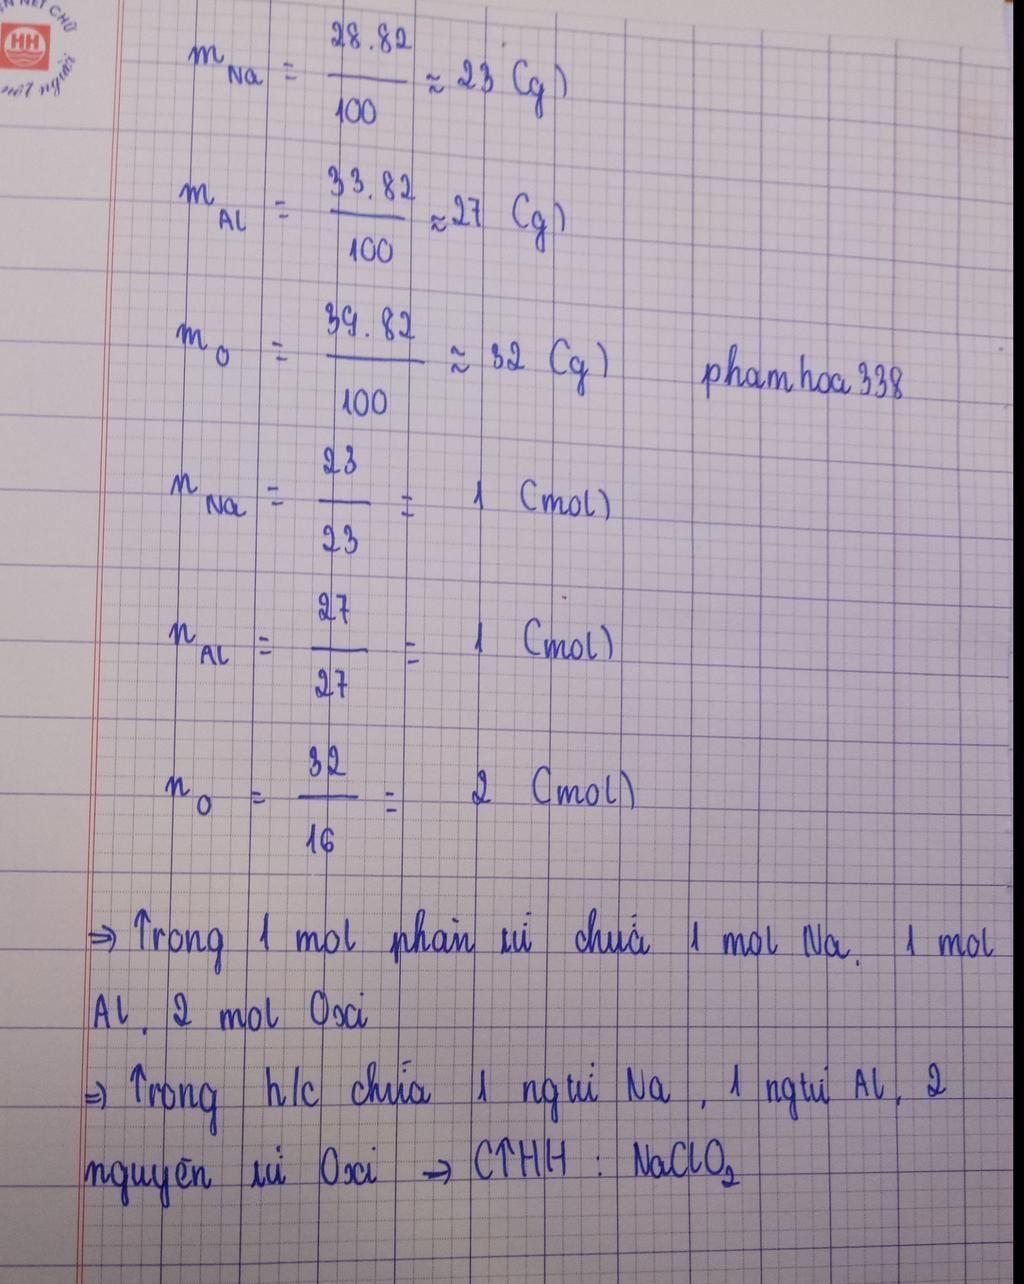 NÉT CHỮ
HH
nết người
m Na = 28.82 / 100 ≈ 23 (g)
m Al = 33.82 / 100 ≈ 27 (g)
m O = 39.82 / 100 ≈ 32 (g)
phamhoa338
n Na = 23 / 23 = 1 (mol)
n Al = 27 / 27 = 1 (mol)
n O = 32 / 16 = 2 (mol)
⇒ Trong 1 mol phân tử chứa 1 mol Na, 1 mol
Al, 2 mol Oxi
⇒ Trong h/c chứa 1 ngtử Na, 1 ngtử Al, 2
nguyên tử Oxi → CTHH : NaClO₂